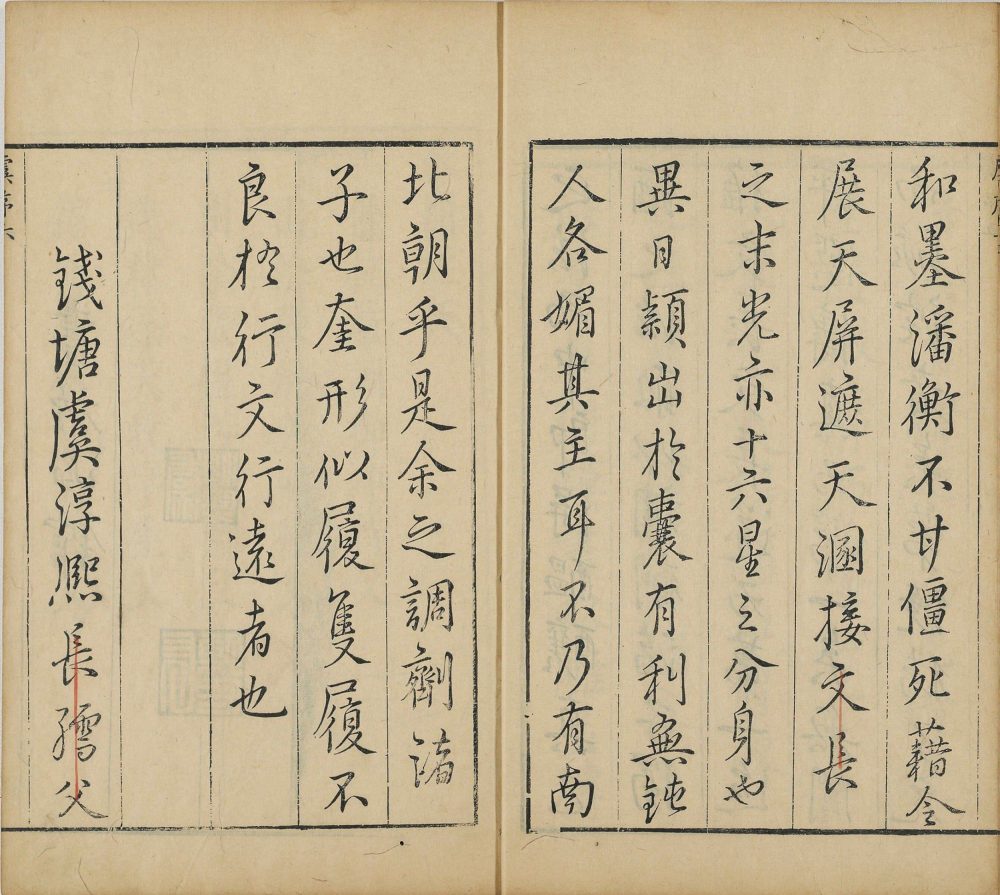 和墨潘衡不甘僵死藉令
展天屏遮天溷接文長
之末光亦十六星之分身也
異日穎出於囊有利無鈍
人各媚其主耳不乃有南
北朝乎是余之調劑諸
子也奎形似履隻履不
良於行文行遠者也
錢塘虞淳熈長孺父
虞序六